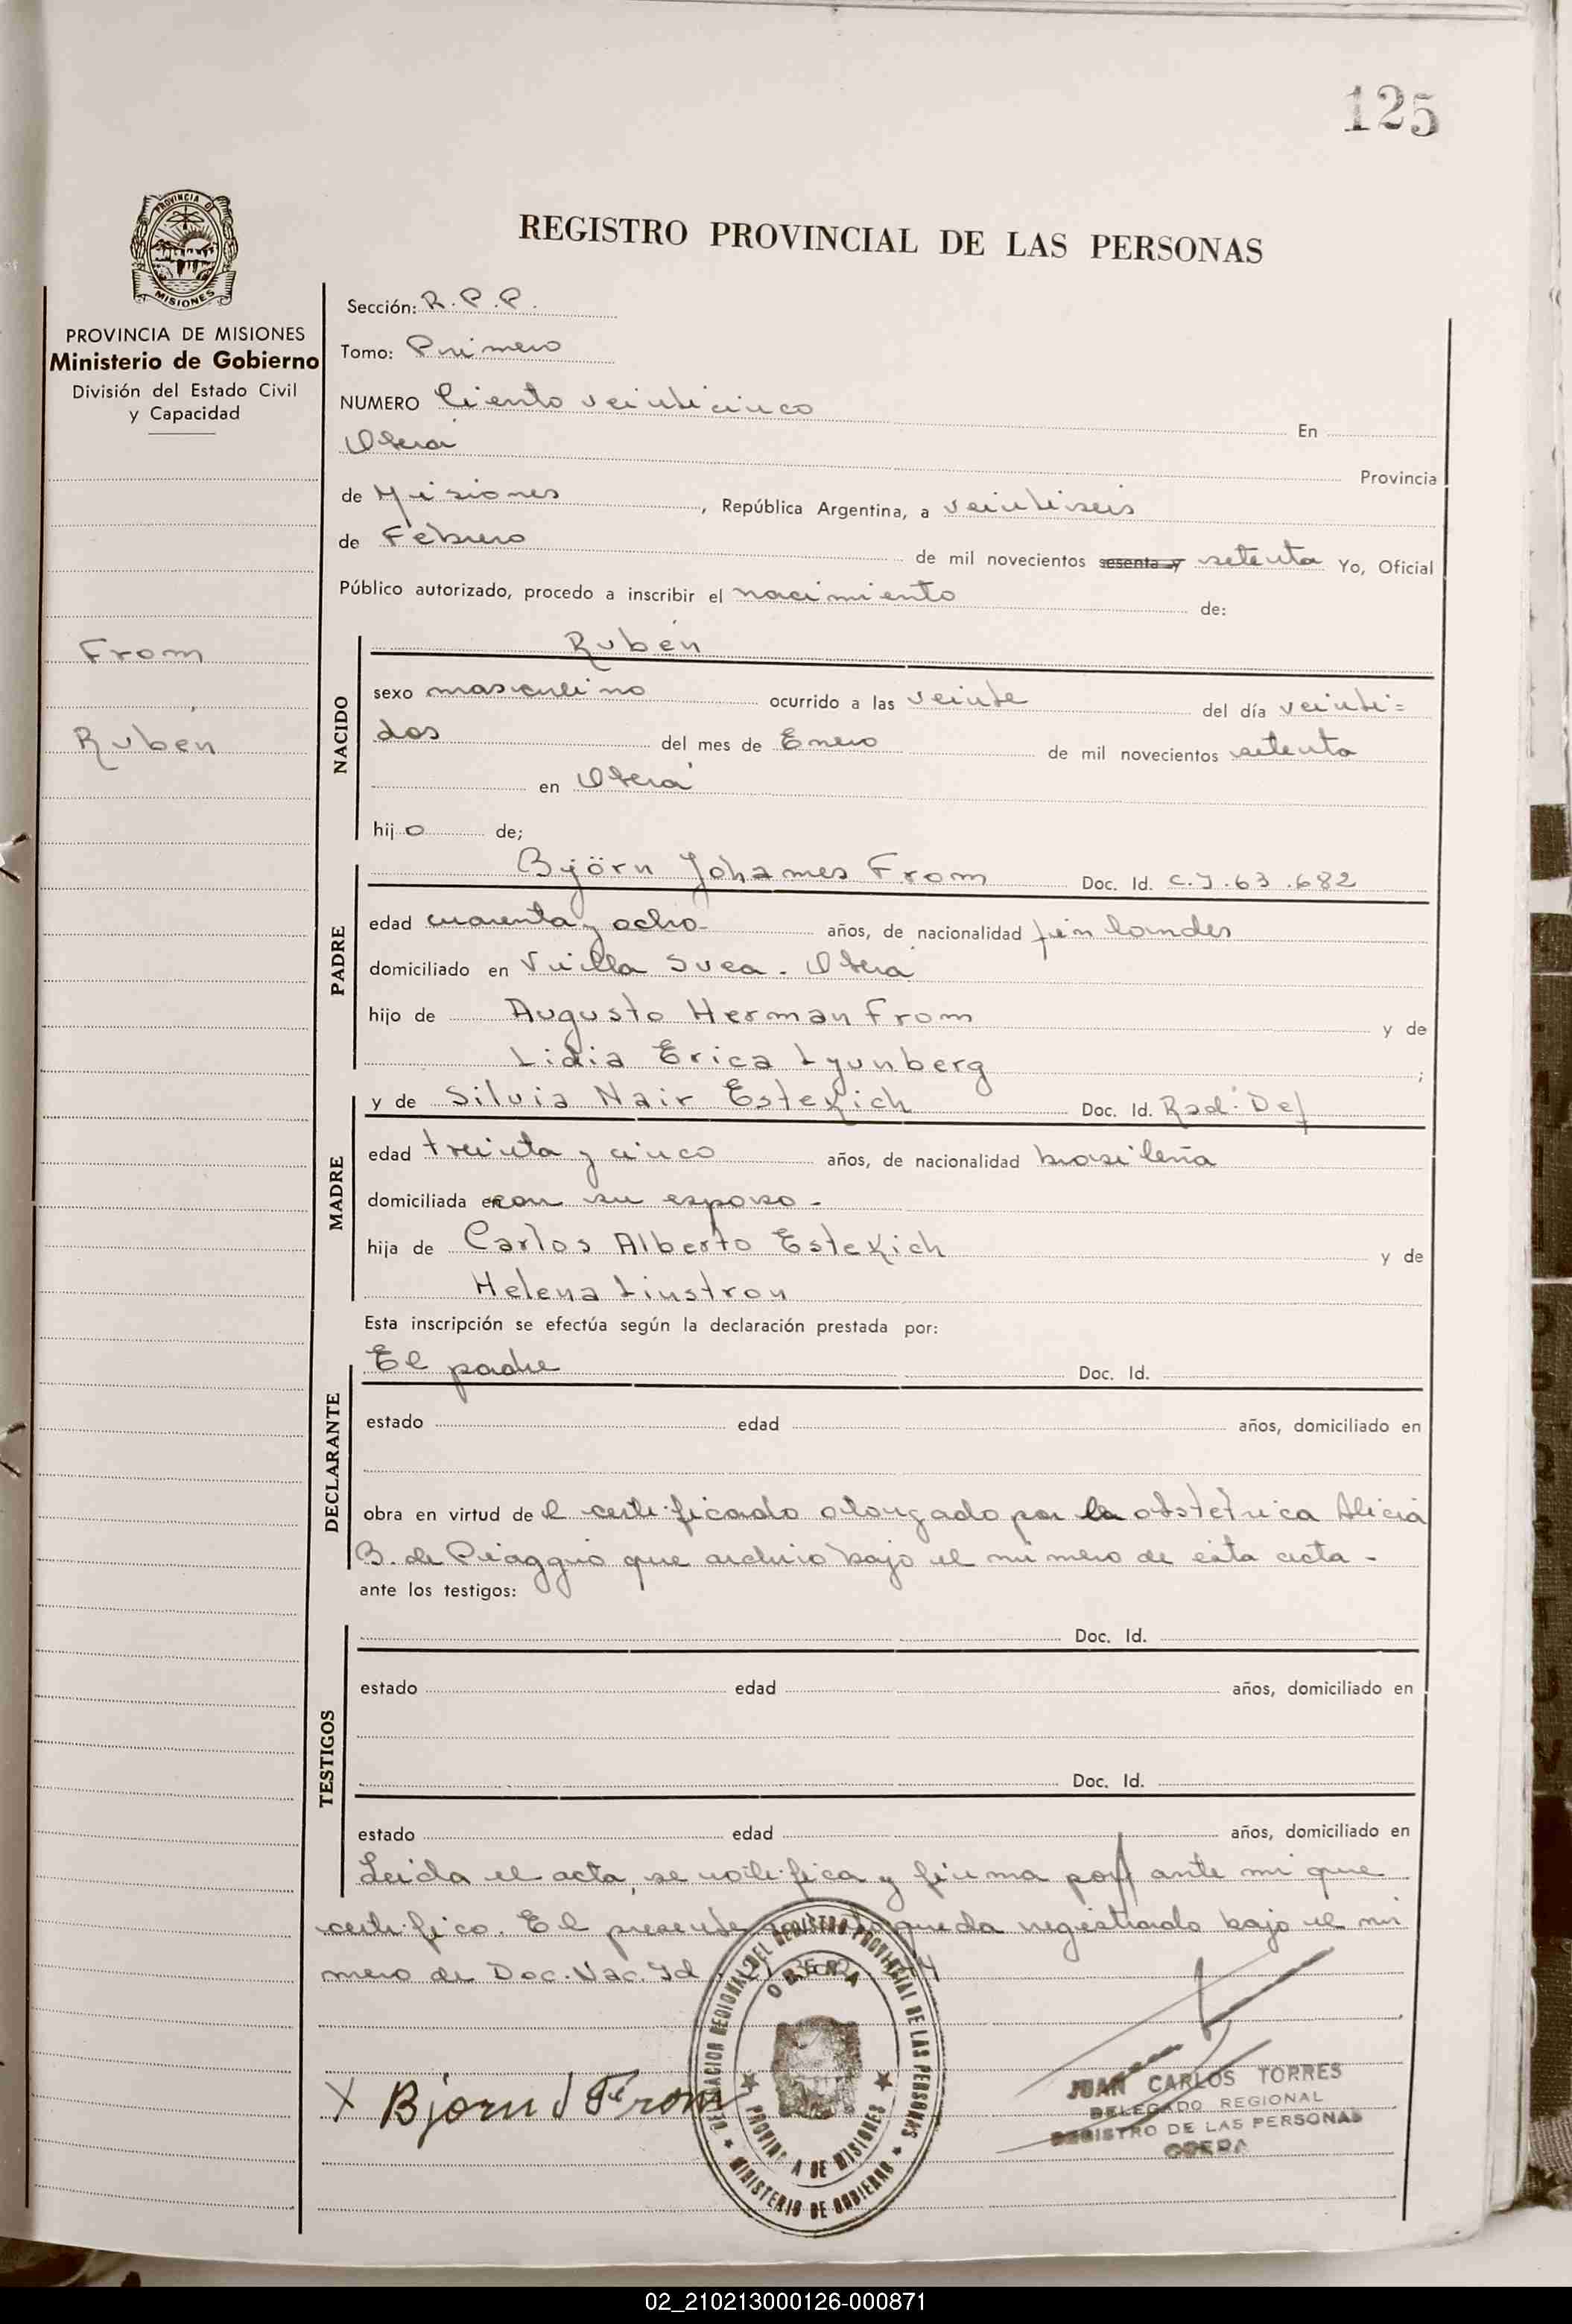 125
REGISTRO PROVINCIAL DE LAS PERSONAS
PROVINCIA DE MISIONES
Ministerio de Gobierno
División del Estado Civil
y Capacidad
From
Rubén
Sección: R.P.P.
Tomo: Primero
NUMERO Ciento veinticinco En
Oberá Provincia
de Misiones, República Argentina, a veintiseis
de Febrero de mil novecientos sesenta y setenta Yo, Oficial
Público autorizado, procedo a inscribir el nacimiento de:
NACIDO
Rubén
sexo masculino ocurrido a las veinte del día veinti=
dos del mes de Enero de mil novecientos setenta
en Oberá
hijo de;
PADRE
Björn Johames From Doc. Id. C.I.63.682
edad cuarenta y ocho- años, de nacionalidad finlandes
domiciliado en Villa Svea - Oberá
hijo de Augusto Herman From y de
Lidia Erica Lyunberg ;
MADRE
y de Silvia Nair Estekich Doc. Id. Rad. Def
edad treinta y cinco años, de nacionalidad brasileña
domiciliada en con su esposo -
hija de Carlos Alberto Estekich y de
Helena Linstron
Esta inscripción se efectúa según la declaración prestada por:
DECLARANTE
El padre Doc. Id.
estado edad años, domiciliado en
obra en virtud de l certificado otorgado por la obstetrica Alicia
B. de Piaggio que archivo bajo el numero de esta acta -
ante los testigos:
TESTIGOS
Doc. Id.
estado edad años, domiciliado en
Doc. Id.
estado edad años, domiciliado en
Leida el acta, se notifica y firma por ante mi que
certifico. El presente queda registrado bajo el nú
mero de Doc. Nac. Id
X Bjorn J From
DELEGACION REGIONAL DEL REGISTRO PROVINCIAL DE LAS PERSONAS
OBERA
PROVINCIA DE MISIONES
MINISTERIO DE GOBIERNO
JUAN CARLOS TORRES
DELEGADO REGIONAL
REGISTRO DE LAS PERSONAS
OBERA
02_210213000126-000871